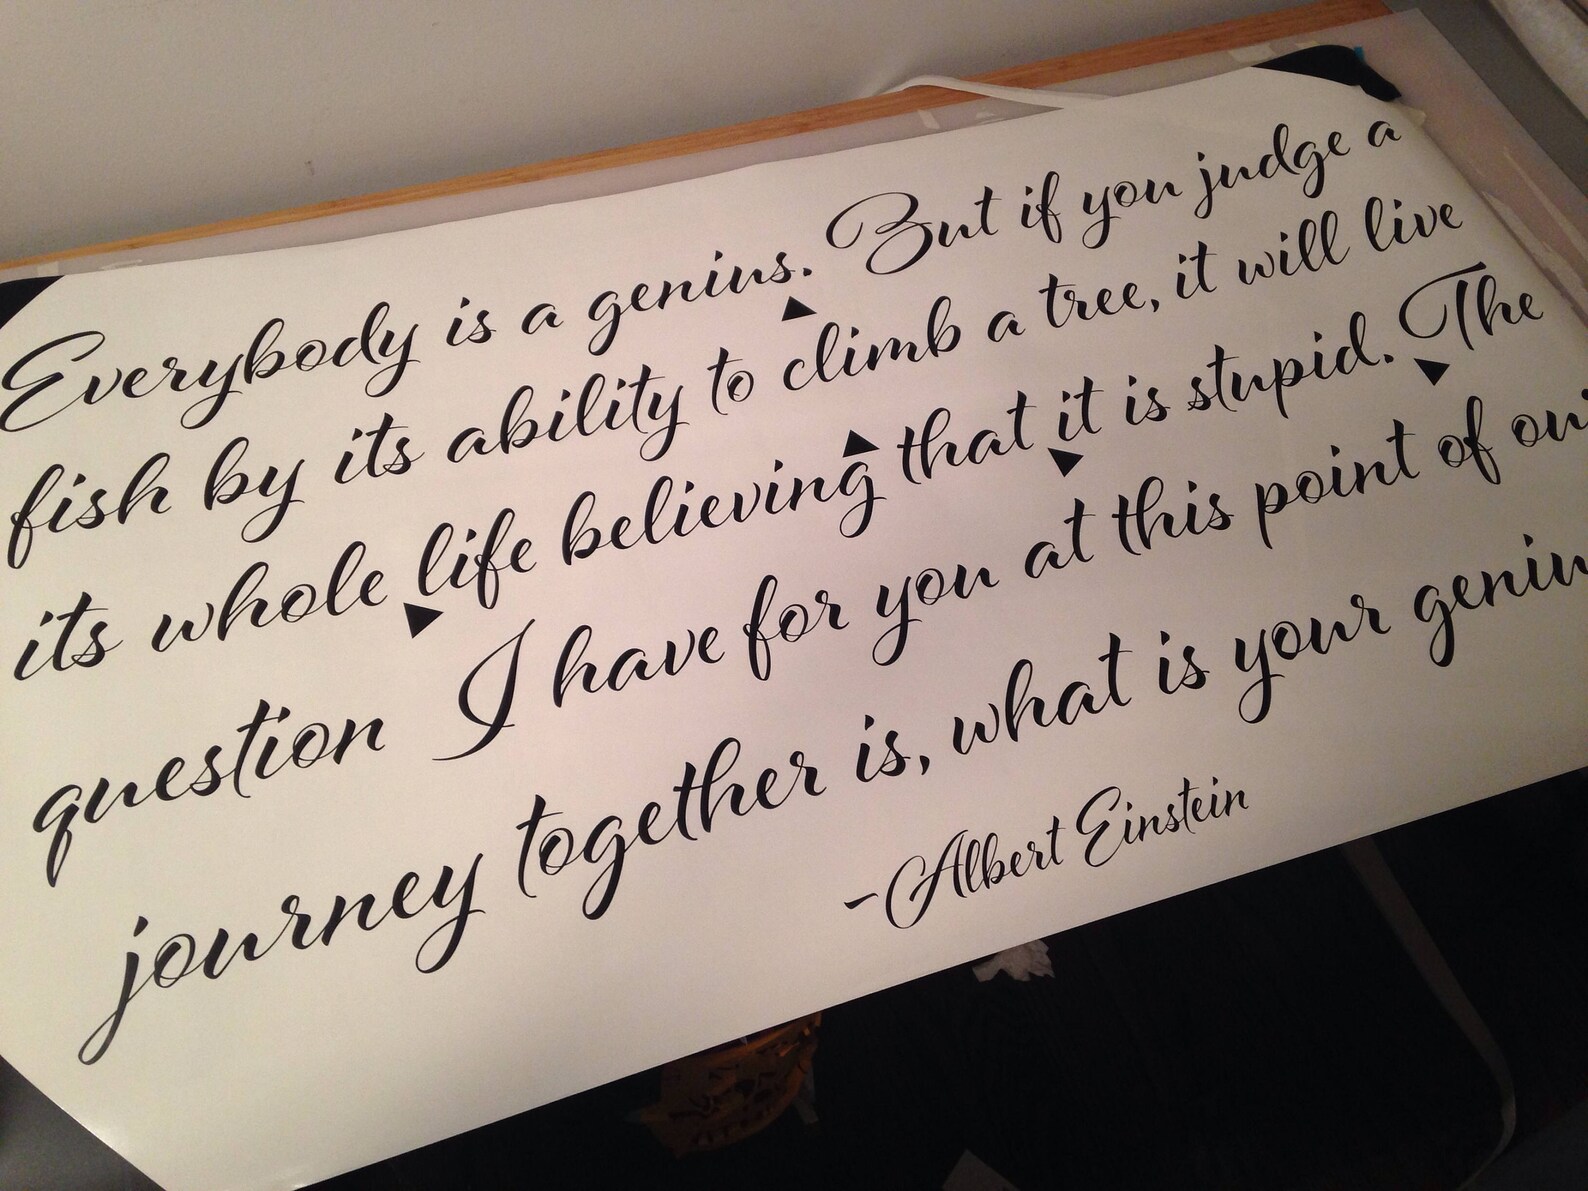 Everybody is a genius. But if you judge a
fish by its ability to climb a tree, it will live
its whole life believing that it is stupid. The
question I have for you at this point of our
journey together is, what is your geniu
-Albert Einstein